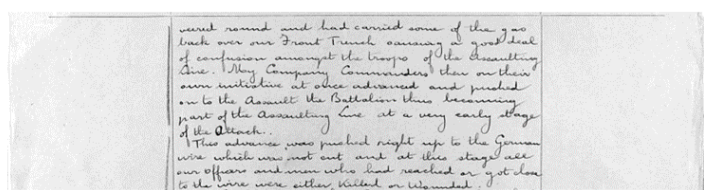 veered round and had carried some of the gas
back over our Front Trench causing a good deal
of confusion amongst the troops of the Assaulting
Line. My Company Commanders then on their
own initiative at once advanced and pushed
on to the Assault the Battalion thus becoming
part of the Assaulting Line at a very early stage
of the Attack.
This advance was pushed right up to the German
wire which was not cut and at this stage all
our officers and men who had reached or got close
to the wire were either Killed or Wounded.